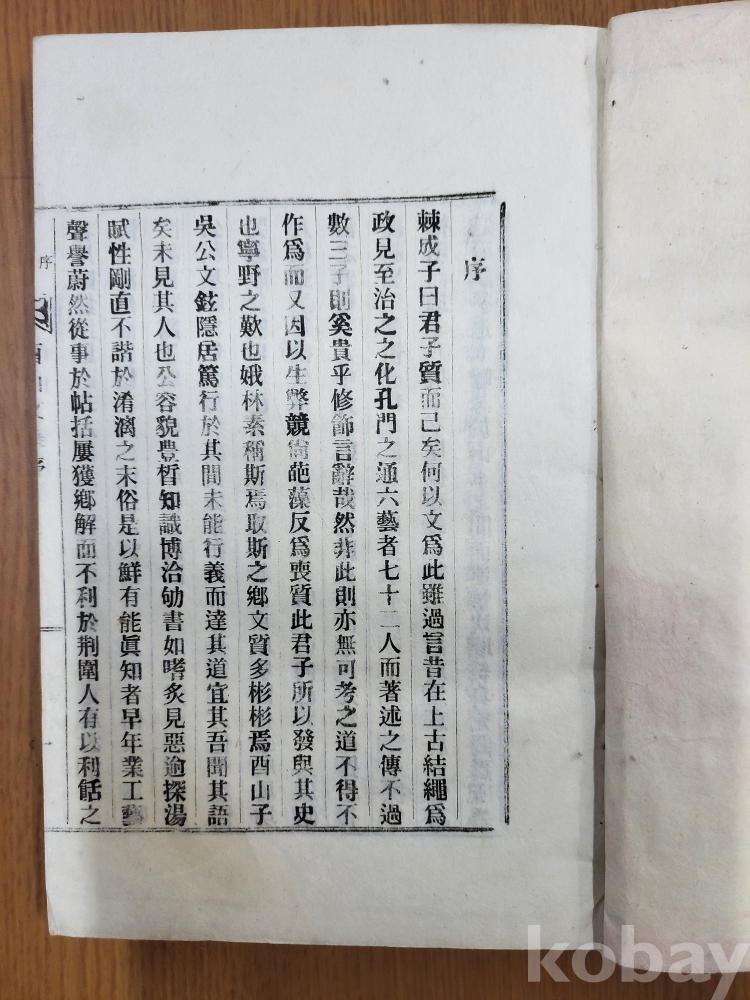 序
棘成子曰君子質而已矣何以文爲此雖過言昔在上古結繩爲
政見至治之之化孔門之通六藝者七十二人而著述之傳不過
數三子則奚貴乎修飾言辭哉然非此則亦無可考之道不得不
作爲而又因以生弊競尙葩藻反爲喪質此君子所以發與其史
也寧野之歎也娥林素稱斯焉取斯之鄕文質多彬彬焉酉山子
吳公文鉉隱居篤行於其間未能行義而達其道宜其吾聞其語
矣未見其人也公容貌豊晳知識博洽劬書如嗜炙見惡逾探湯
賦性剛直不諧於淆漓之末俗是以鮮有能眞知者早年業工藝
聲譽蔚然從事於帖括屢獲鄕解而不利於荊圍人有以利餂之
序
kobay